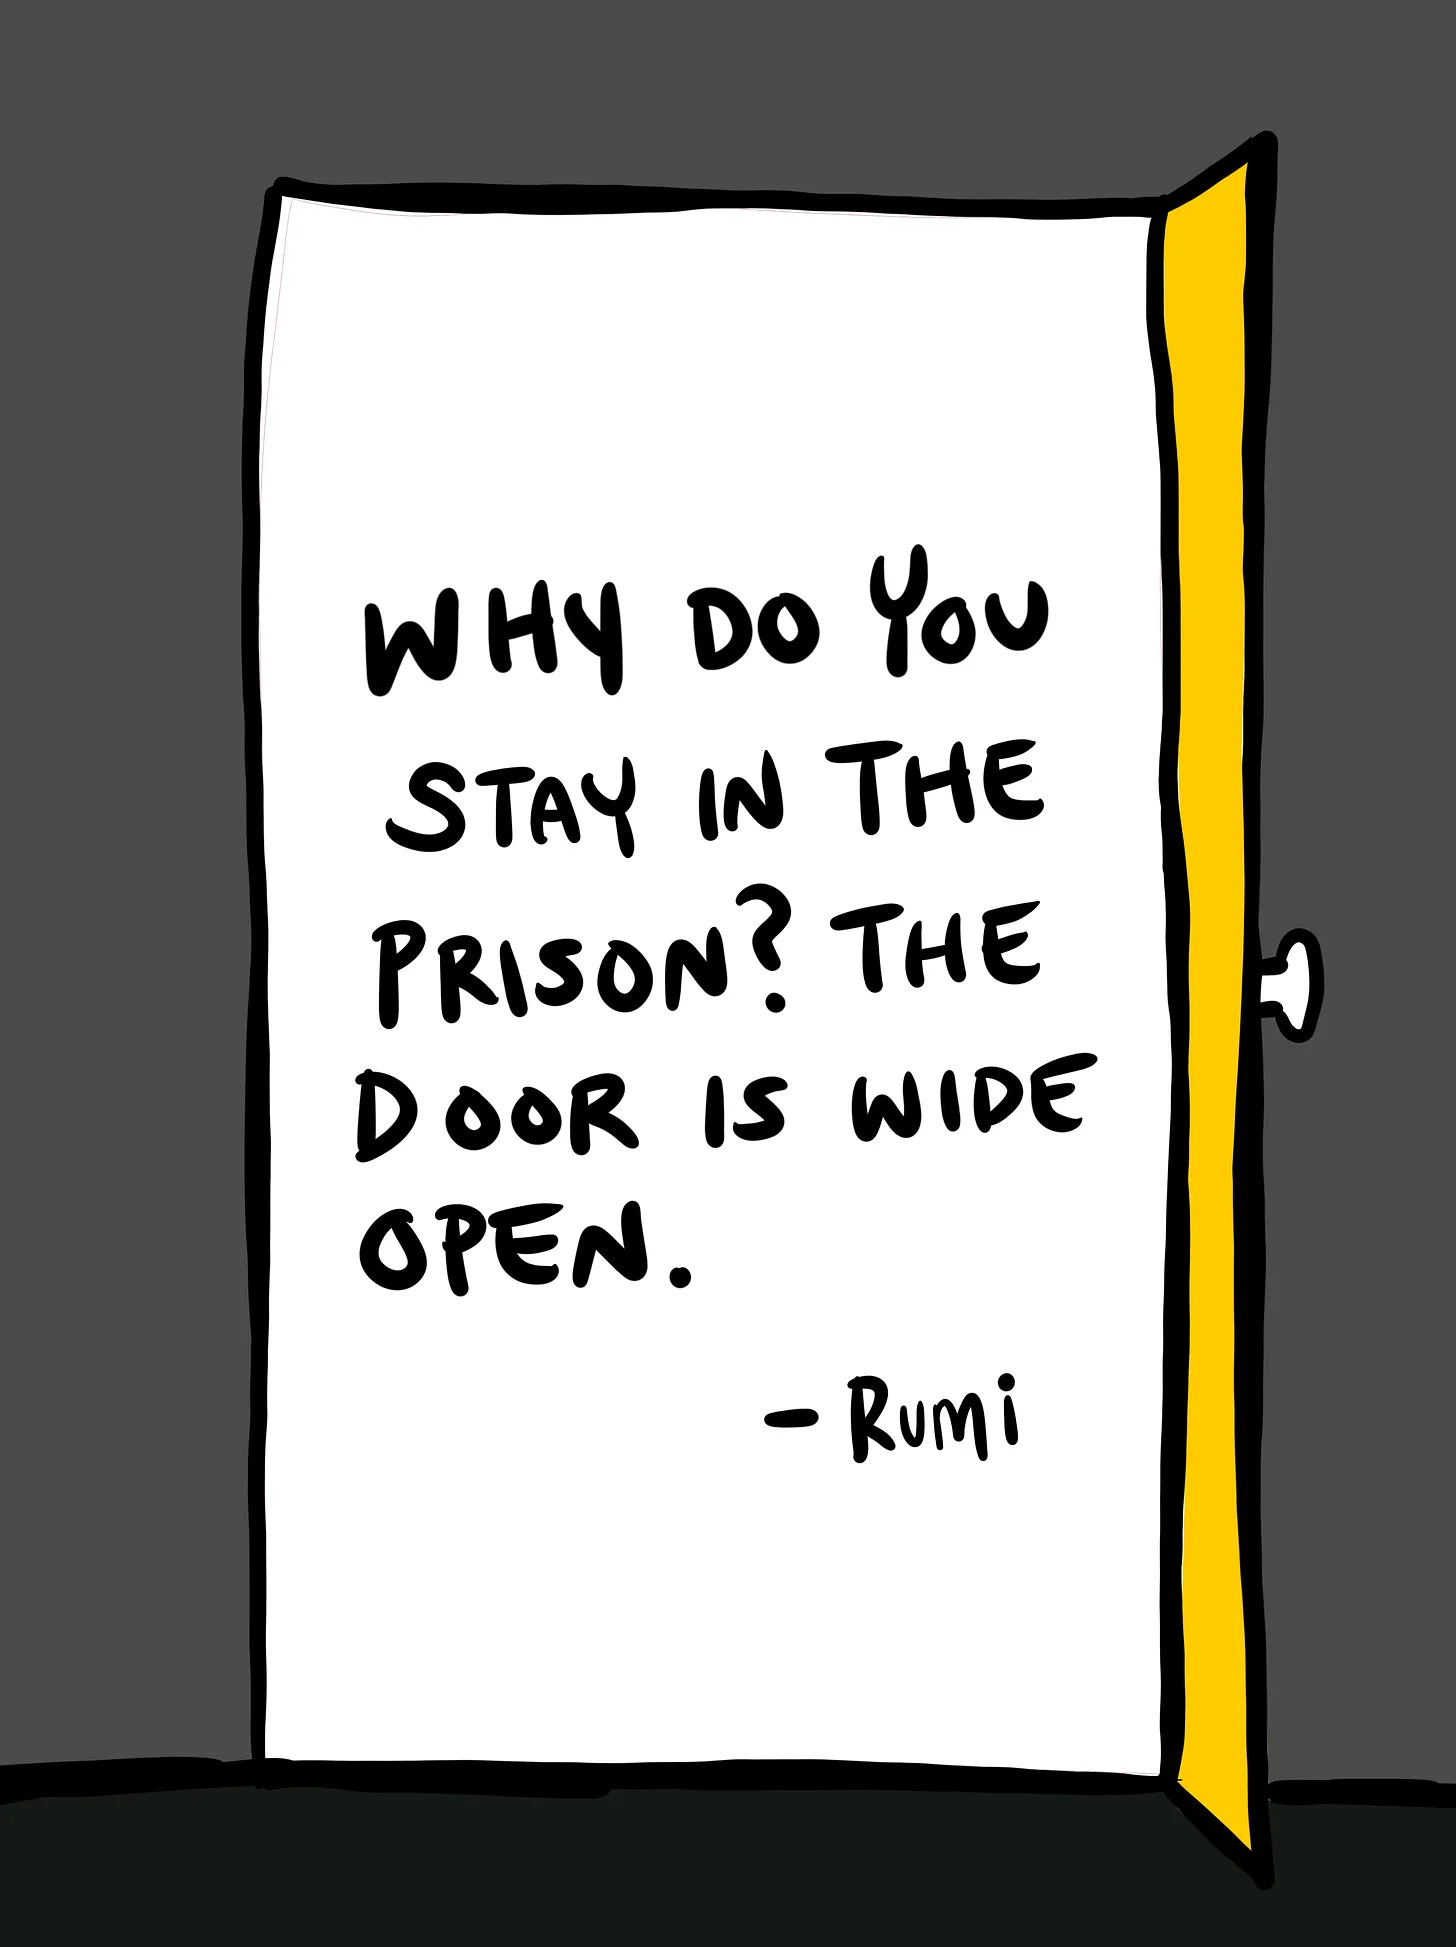 WHY DO YOU
STAY IN THE
PRISON? THE
DOOR IS WIDE
OPEN.
- Rumi